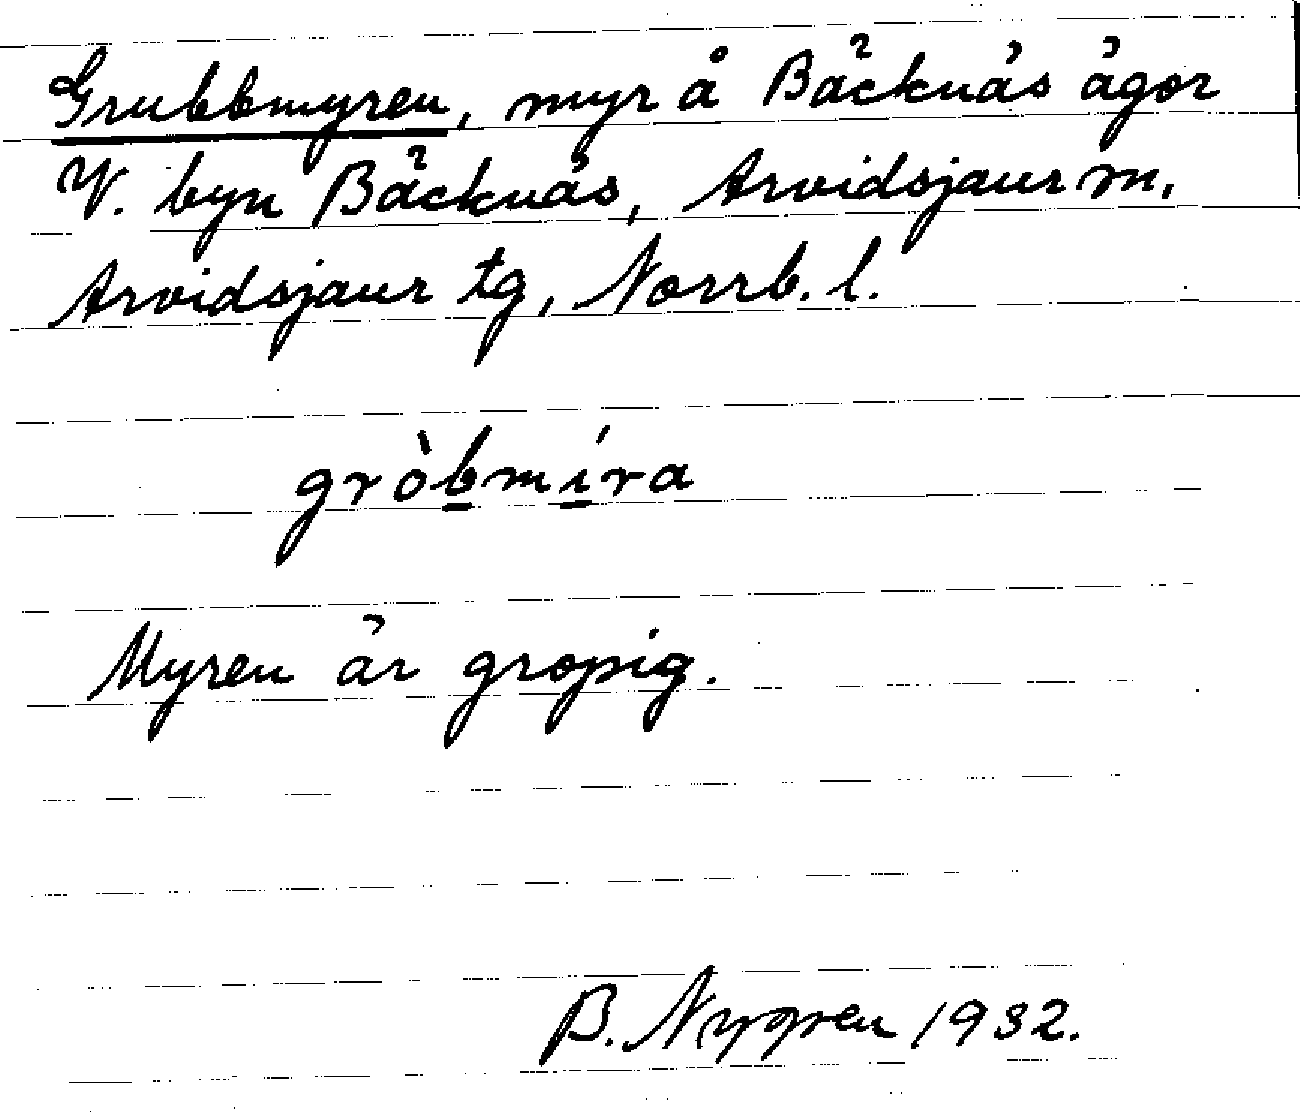 Grubbmyren, myr å Bäcknäs ägor
V. byn Bäcknäs, Arvidsjaur m,
Arvidsjaur tg, Norrb. l.
gròbmíra
Myren är gropig.
B. Nygren 1932.